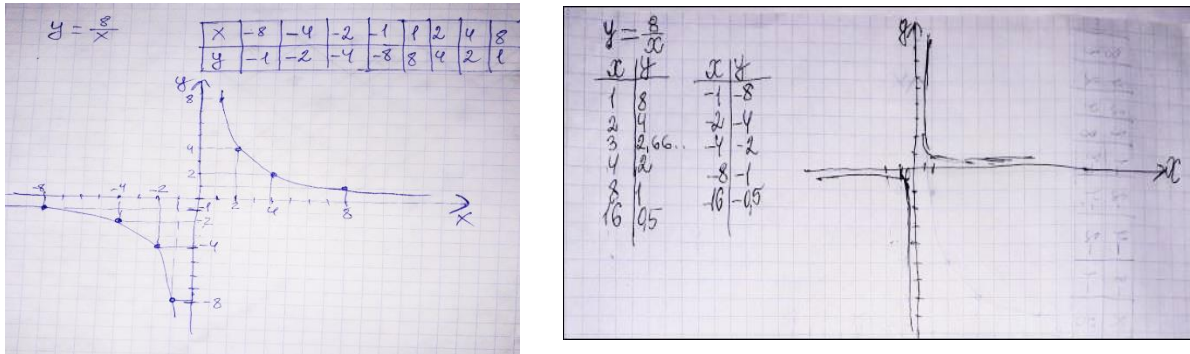 y = 8/x
x -8 -4 -2 -1 1 2 4 8
y -1 -2 -4 -8 8 4 2 1
y
8
4
2
-8 -4 -2 -1 2 4 8
x
-1
-2
-4
-8
y = 8/x
x y
1 8
2 4
3 2,66..
4 2
8 1
16 0,5
x y
-1 -8
-2 -4
-4 -2
-8 -1
-16 -0,5
y
x